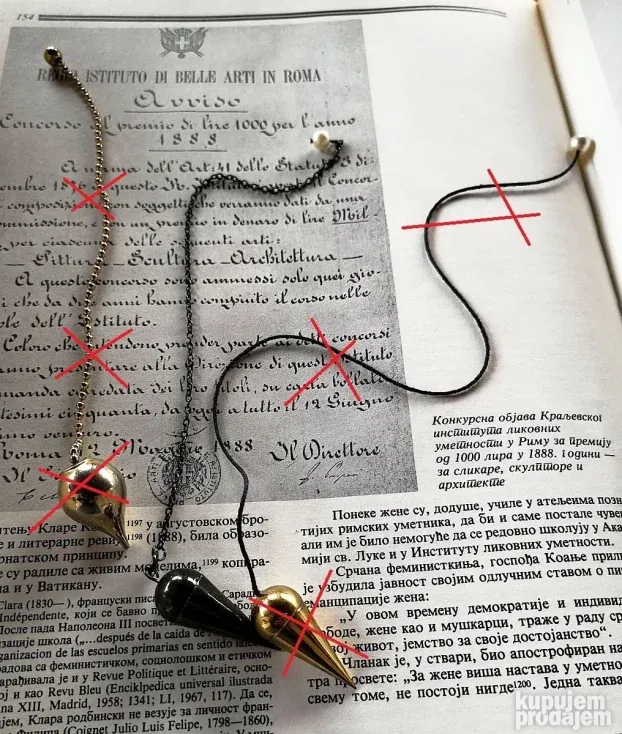 154
REGIO ISTITUTO DI BELLE ARTI IN ROMA
Avviso
Concorso al premio di lire 1000 per l'anno
1888
A norma dell'Art: 41 dello Statuto 3 di-
commissione, e con un premio in denaro di lire Mil-
per ciascuna delle seguenti arti:
Pittura — Scultura — Architettura —
A questo concorso sono ammessi solo quei gio-
i che da due anni hanno compiuto il corso nelle
dell'Istituto.
Coloro che intendono prender parte ai detti concorsi
presentare alla Direzione di questo Istituto
manda corredata dei loro titoli, su carta bollata
tesimi cinquanta, da oggi a tutto il 12 Giugno
anno venturo.
Roma 1888
Il Direttore
Конкурсна објава Краљевског
института ликовних
уметности у Риму за премију
од 1000 лира у 1888. години —
за сликаре, скулпторе и
архитекте
1197 у августовском бро-
е и литерарне 1198 (1888), била образо-
онатском принципу.
су радиле са живим 1199 копира-
и у Ватикану.
Clara (1830— ), француски
Indépendente, који се бавио
После пада Наполеона III
зације школа („...después de la caida de
ganizacion de las escuelos primarias en sentido
радова са феминистичком, социолошком и етичком
арађивала је и у Revue Politique et Littéraire, осно-
је и као Revu Bleu (Enciklpedica universal ilustrada
na XIII, Madrid, 1958; 1341; LI, 1967, 117). Да се,
ијем, Клара родбински не везује за личност фран-
Филипа (Coignet Julio Luis Felipe, 1798—1860),
Понеке жене су, додуше, училе у атељеима позн
тијих римских уметника, да би и саме постале чувен
али им је било немогуће да се редовно школују у Ака
мији св. Луке и у Институту ликовних уметности.
Срчана феминисткиња, госпођа Коање прили
је узбудила јавност својим одлучним ставом о пи
еманципације жена:
„У овом времену демократије и индивид
слободе, жене као и мушкарци, траже у раду ср
живот, јемство за своје достојанство“.
Чланак је, у ствари, био апострофиран на
просвете: „За жене виша настава у уметно
свему томе, не постоји нигде“1200. Једна таква
kupujem
prodajem